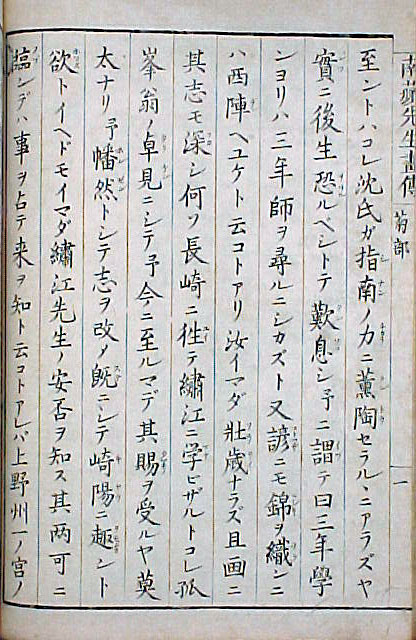 至ントハコレ沈氏ガ指南ノ力ニ薫陶セラルヽニアラズヤ
實ニ後生恐ルベシトテ歎息シ予ニ謂テ曰三年學
ンヨリハ三年師ヲ尋ルニシカズト又諺ニモ錦ヲ織ンニ
ハ西陣ヘユケト云コトアリ汝イマダ壯歳ナラズ且画ニ
其志モ深シ何ソ長崎ニ徃テ繡江ニ学ビザルトコレ孤
峯翁ノ卓見ニシテ予今ニ至ルマデ其賜ヲ受ルヤ莫
太ナリ予幡然トシテ志ヲ改メ既ニシテ崎陽ニ趣ント
欲トイヘドモイマダ繡江先生ノ安否ヲ知ス其两可ニ
臨ンデハ事ヲ占テ来ヲ知ト云コトアレバ上野州一ノ宮ノ
先生畫傳
菊部
一